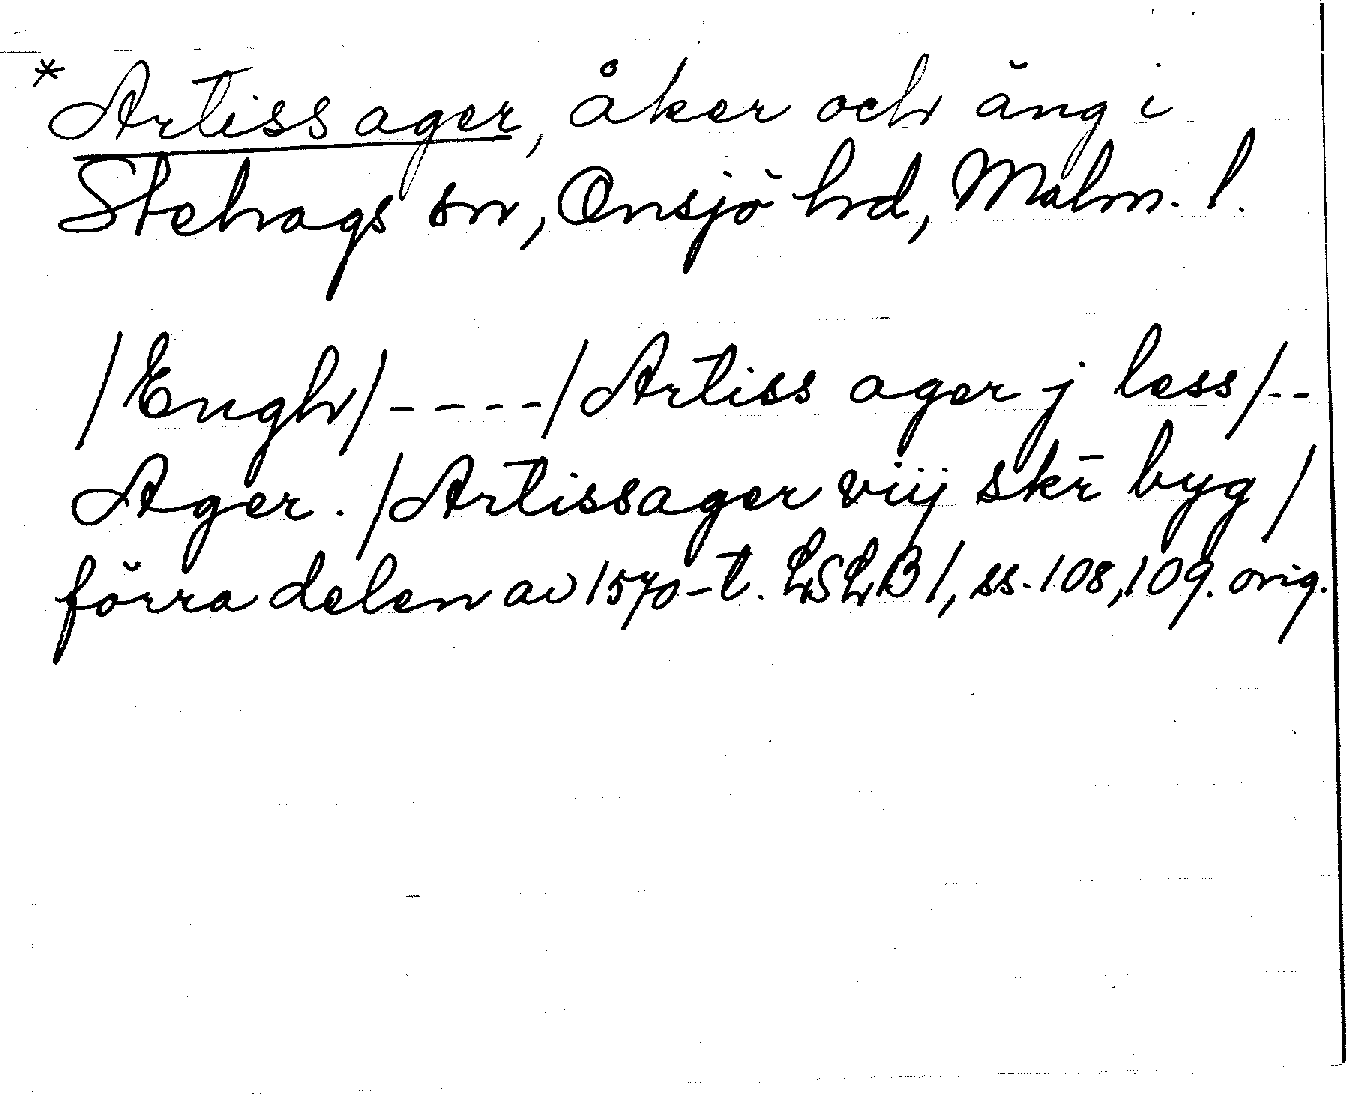 *Artiss ager, åker och äng i
Stehags sn, Onsjö hd, Malm. l.
/Engh/----/Artiss ager j less/--
Ager. /Artissager viij skr̄ byg/
förra delen av 1570-t. LSLB1, ss. 108, 109. orig.